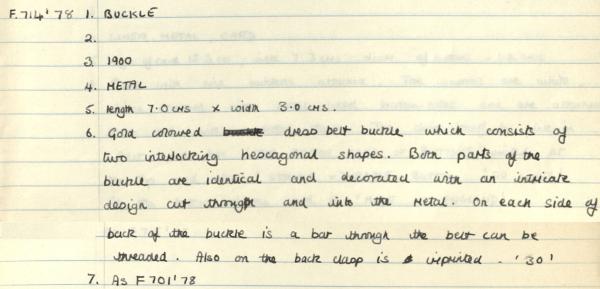 F.714'78 1. BUCKLE
2.
3. 1900
4. METAL
5. length 7.0 cms x width 3.0 cms.
6. Gold coloured buckle dress belt buckle which consists of
two interlocking hexagonal shapes. Both parts of the
buckle are identical and decorated with an intricate
design cut through and into the metal. On each side of
back of the buckle is a bar through the belt can be
threaded. Also on the back clasp is imprinted. '30'
7. As F701'78